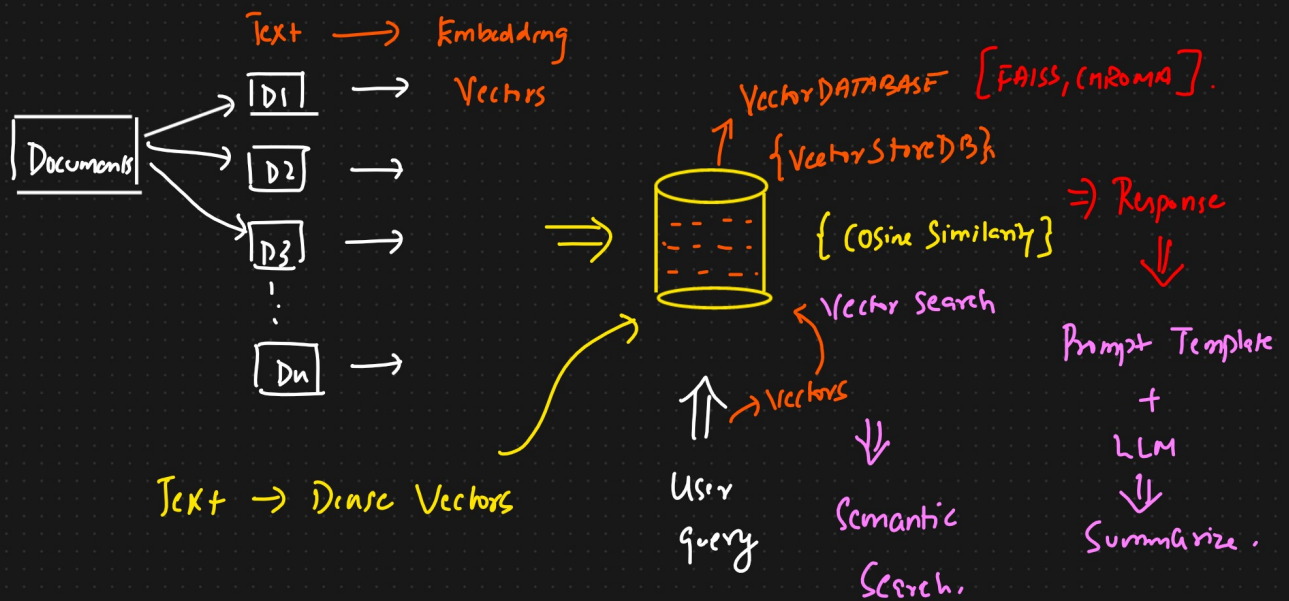 Text → Embedding
Vectors
Documents
D1
D2
D3
Dn
Text → Dense Vectors
VectorDATABASE [FAISS, CHROMA].
{VectorStoreDB}
{Cosine Similarity}
Vector Search
Vectors
User
query
Semantic
Search.
⇒ Response
Prompt Template
+
LLM
Summarize.